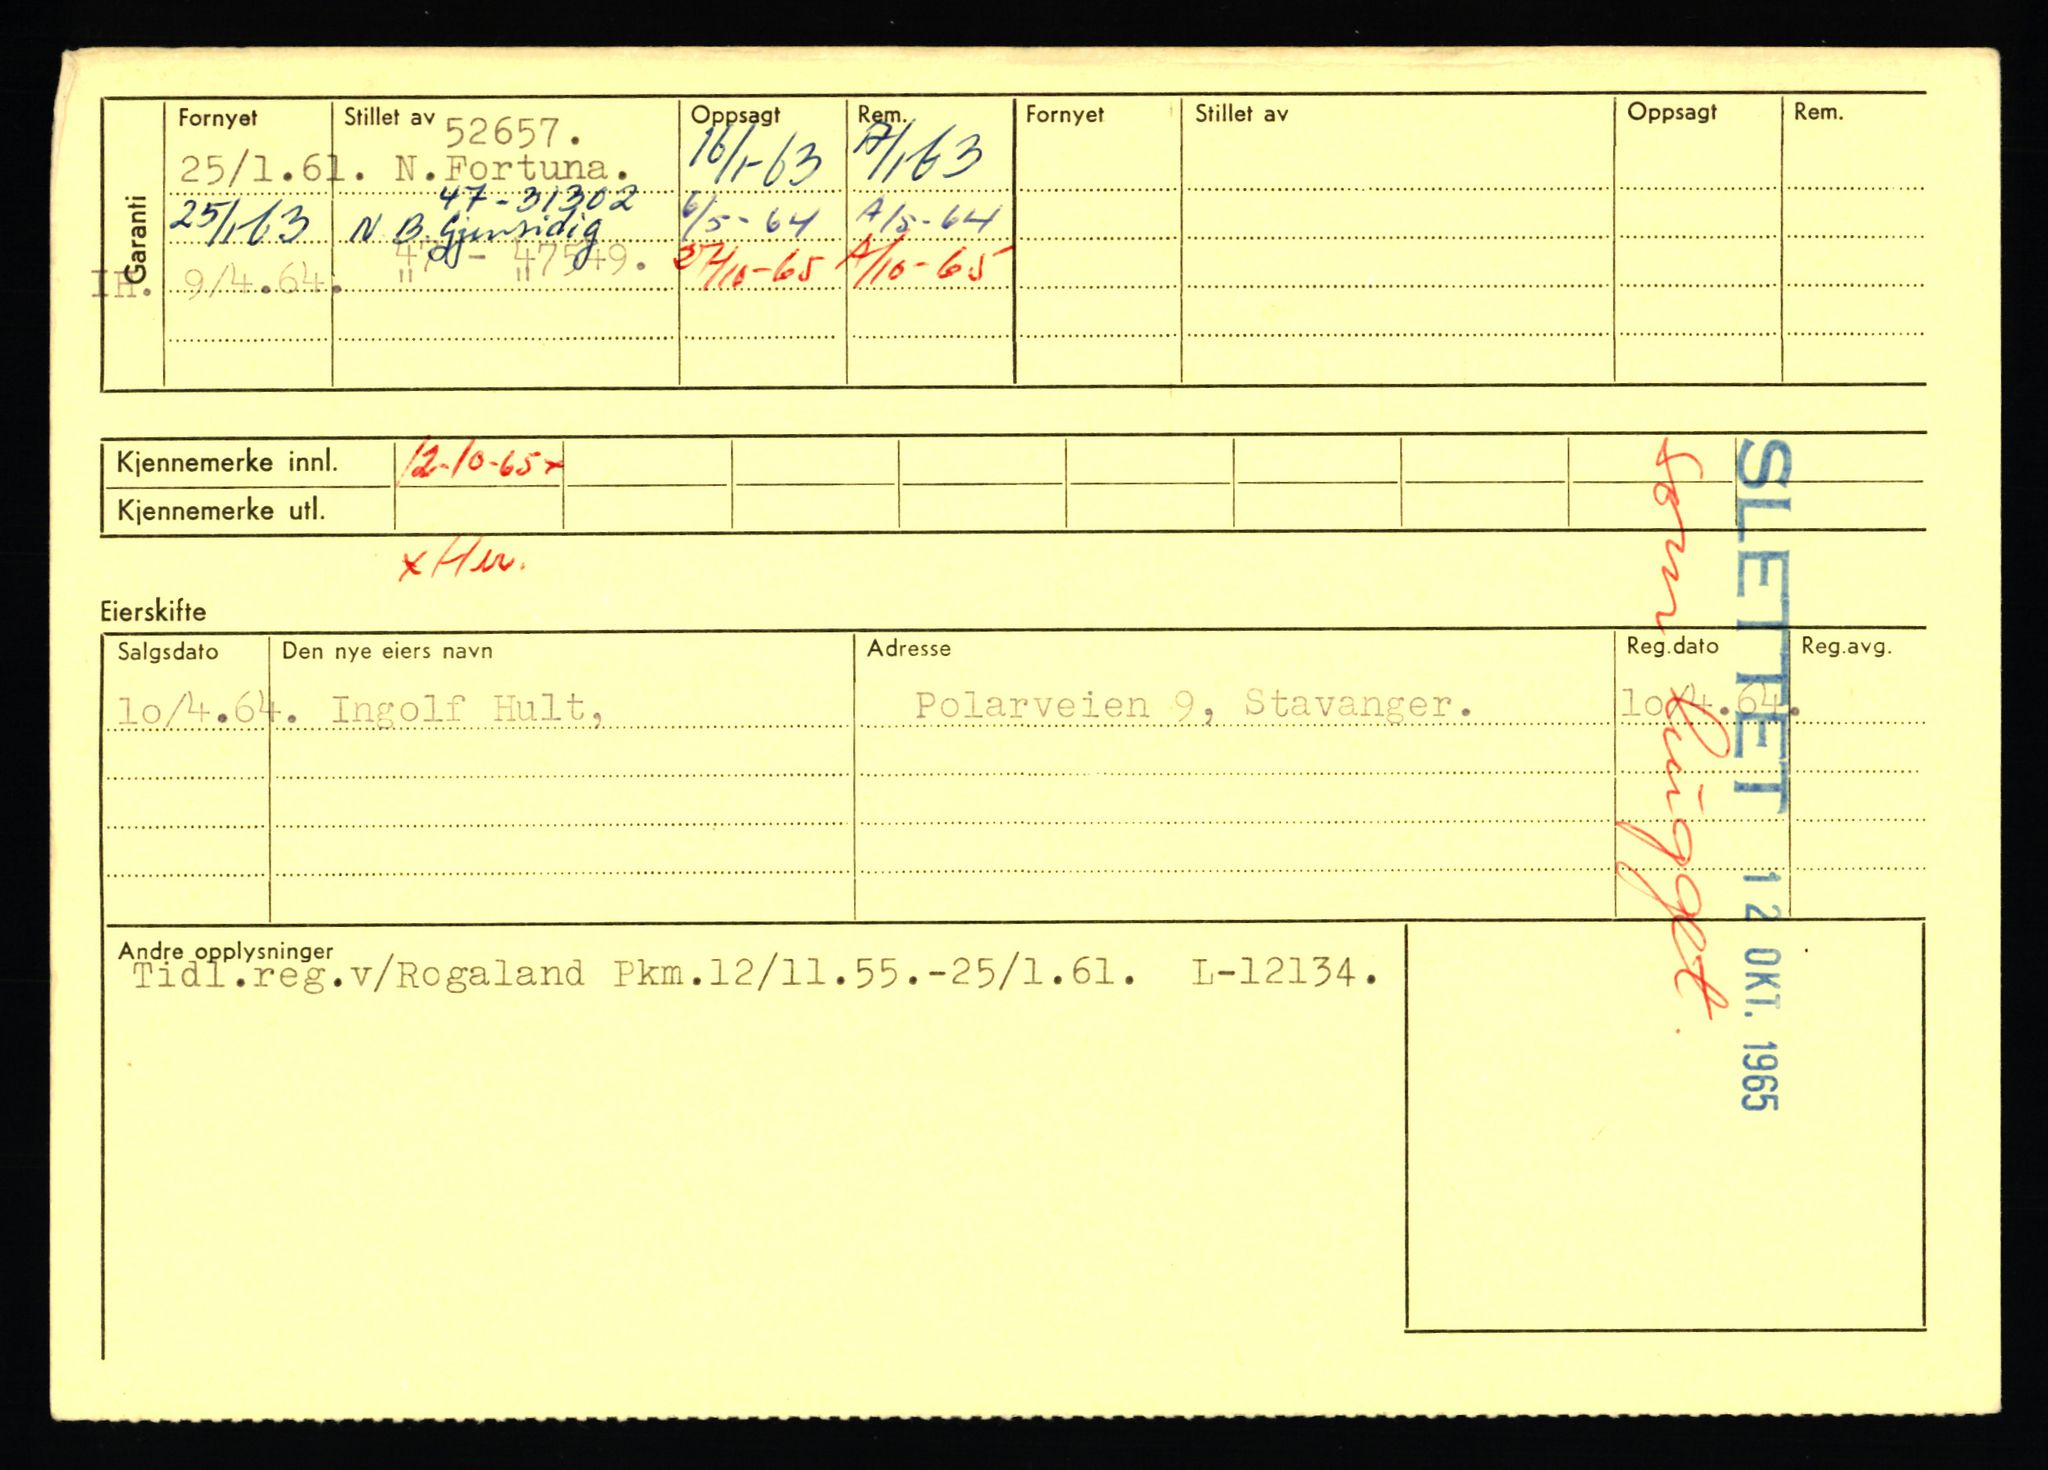 Garanti
Fornyet Stillet av Oppsagt Rem. Fornyet Stillet av Oppsagt Rem.
52657.
25/1.61. N.Fortuna. 16/1-63 A/1-63
47-31302
25/1-63 N B. Gjensidig 6/5-64 A/5-64
47 - 47549.
IH. 9/4.64. " " 27/10-65 A/10-65
Kjennemerke innl. 12-10-65 x
Kjennemerke utl.
x Her.
Eierskifte
Salgsdato Den nye eiers navn Adresse Reg.dato Reg.avg.
lo/4.64. Ingolf Hult, Polarveien 9, Stavanger. lo/4.64.
Andre opplysninger
Tidl.reg.v/Rogaland Pkm.12/11.55.-25/1.61. L-12134.
SLETTET 12 OKT. 1965
som